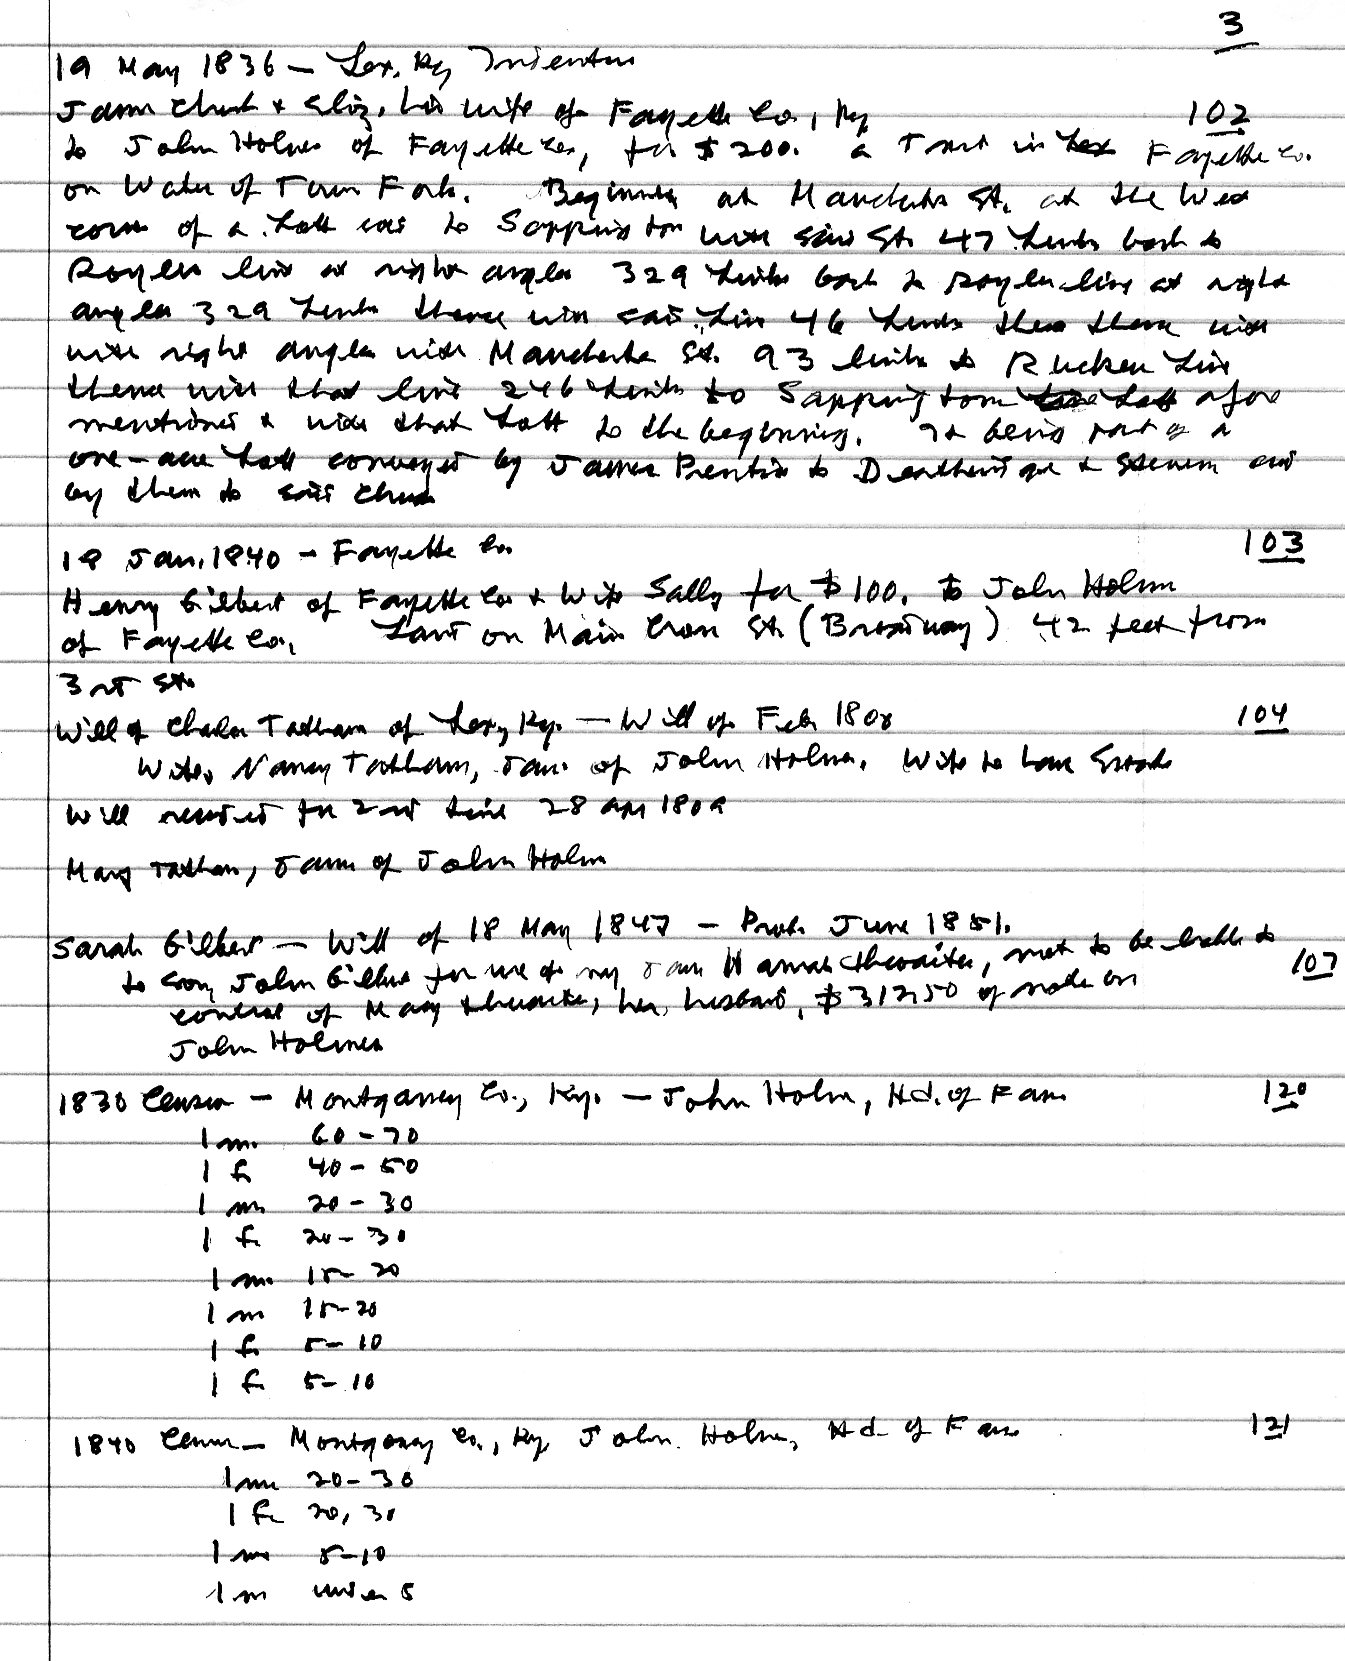 3
19 May 1836 – Lex. Ky Indenture
& Eliz. his wife of Fayette Co., Ky 102
to John Holmes of Fayette Co., for $200. a Tract in Fayette Co.
on Water of Town Fork. Beginning at Manchester St. at the West
corner of a Lott to Sappington with said St. 47 Links back to
line at right angles 329 Links back to line at right
angles 329 Links thence with said Line 46 Links thence with
with right angles with Manchester St. 93 links to Line
thence with that line 246 Links to Sappington Lott afore
mentioned & with that Lott to the beginning. It being part of a
one-acre Lott conveyed by James Prentiss to &
by them to said
18 Jan. 1840 – Fayette Co. 103
Henry Gilbert of Fayette Co & Wife Sally for $100. to John Holmes
of Fayette Co., Land on Main Cross St. (Broadway) 42 feet from
3rd St.
Will of Charles Tatham of Lex, Ky. – Will of Feb 1808 104
Wife, Nancy Tatham, dau. of John Holmes. Wife to have Estate
Will recorded for 2nd time 28 Apr 1809
Mary Tatham, daur of John Holmes
Sarah Gilbert – Will of 18 May 1847 – Prob. June 1851.
to son, John Gilbert for use of my dau Hannah Thwaites, not to be liable to 107
control of Thwaites, her husband, $312.50 of note on
John Holmes
1830 Census – Montgomery Co., Ky. – John Holmes, Hd. of Fam 120
1 m. 60–70
1 f. 40–50
1 m 20–30
1 f. 20–30
1 m. 15–20
1 m 15–20
1 f. 5–10
1 f. 5–10
1840 Census – Montgomery Co., Ky. John Holmes, Hd. of Fam 121
1 m 20–30
1 f. 20, 30
1 m 5–10
1 m under 5